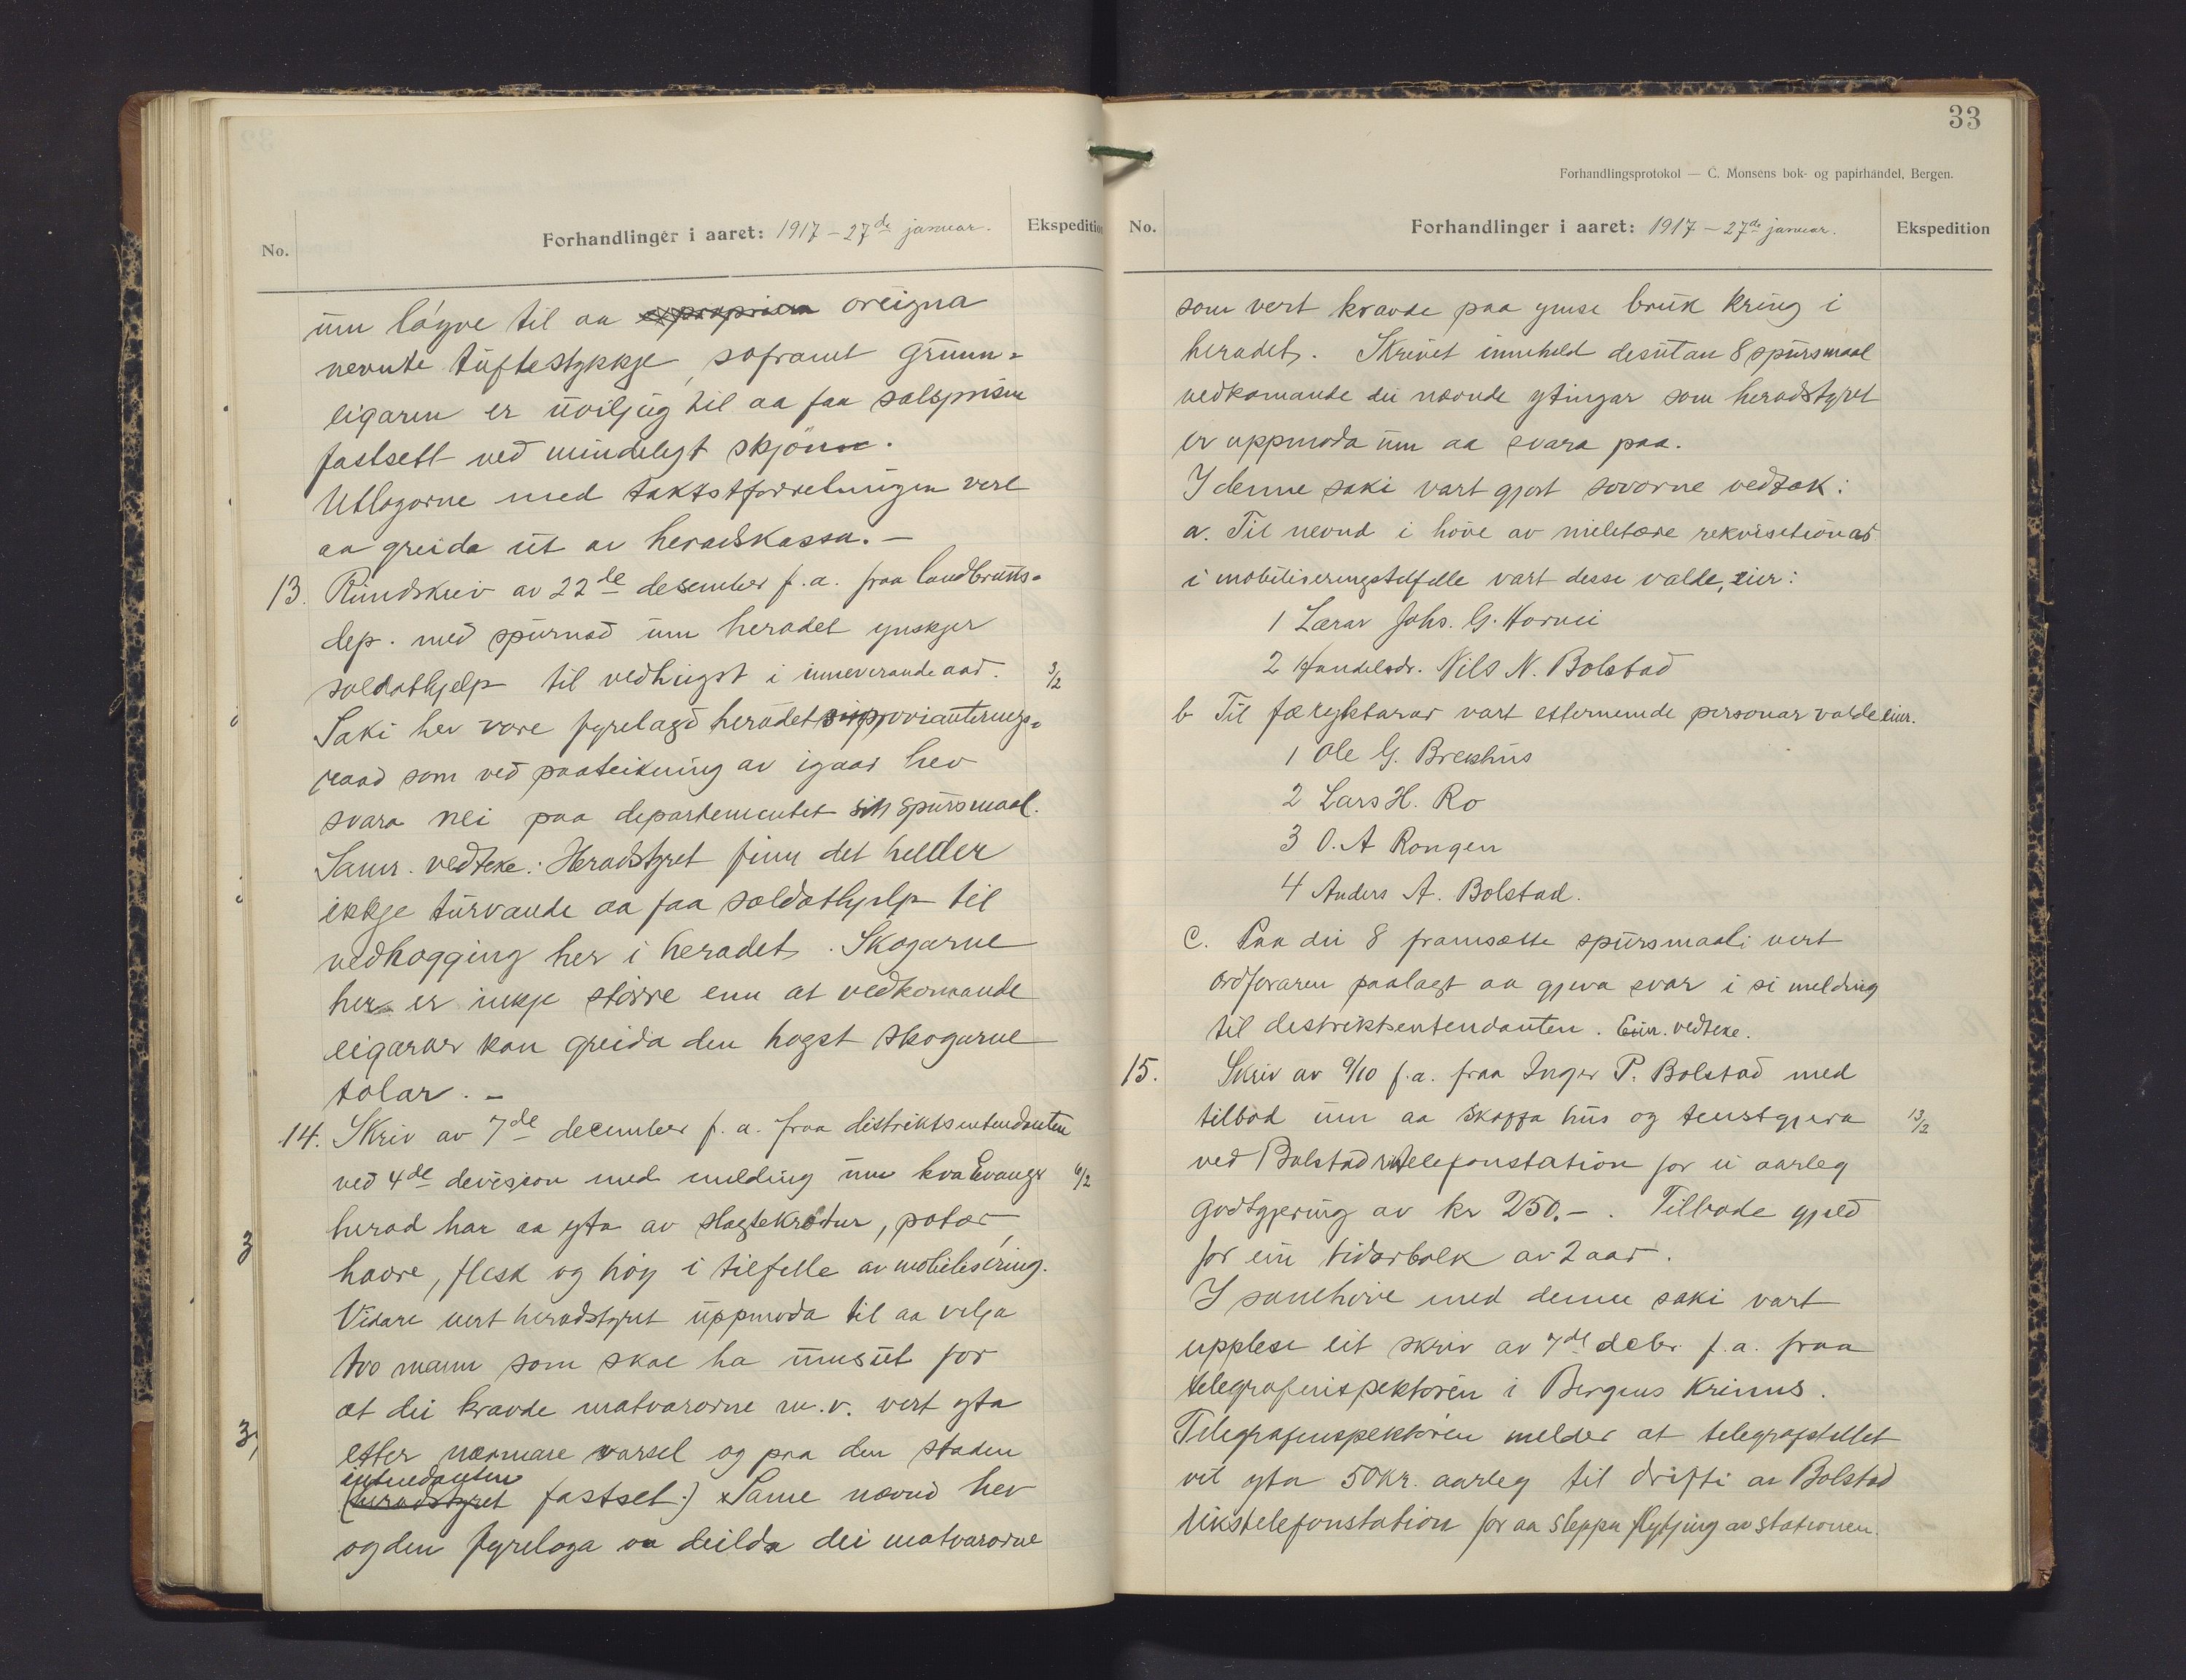 No.
Forhandlinger i aaret: 1917 – 27de januar.
Ekspedition
um løgve til aa expropriera oreigna
nevnte tuftestykkje, soframt grunn-
eigaren er uviljug til aa faa salsprisen
fastsett ved mindelegt skjønn.
Utlogorne med takstforretningen vert
aa greida ut av heradskassa. –
13. Rundskriv av 22de desember f.a. fraa landbruks-
dep. med spurnad um heradet ynskjer
soldathjelp til vedhugst i inneverande aar. 3/2
Saki hev vore fyrelagd heradets provianterings-
raad som ved paateikning av igaar hev
svara nei paa departementet sitt spursmaal.
Samr. vedteke: Heradstyret finn det heller
ikkje turvande aa faa soldathjelp til
vedhogging her i heradet. Skogarne
her er inkje større enn at vedkomande
eigarar kan greida den hogst skogarne
tolar. –
14. Skriv av 7de december f.a. fraa distriktsintendanten
ved 4de devisjon med melding um kva Evanger 6/2
herad har aa yta av slagtekrøtur, potær,
havre, flesk og høy i tilfelle av mobilisering.
Vidare vert heradstyret uppmoda til aa velja
tvo mann som skal ha umsut for
at dei kravde matvarorne m.v. vert yta
etter nærmare varsel og paa den staden
intendanten
(heradstyret fastset.) Same nævnd hev
ogden fyreloga aa deilda dei matvarorne
33
Forhandlingsprotokol — C. Monsens bok- og papirhandel, Bergen.
No.
Forhandlinger i aaret: 1917 – 27de januar.
Ekspedition
som vert kravde paa ymse bruk kring i
heradet. Skrivet inneheld desutan 8 spursmaal
vedkomande dei nævnde ytingar som heradstyret
er uppmoda um aa svara paa.
I denne saki vart gjort sovorne vedtak:
a. Til nevnd i høve av miletære rekvisitionar
i mobiliseringstilfelle vart desse valde, eir:
1 Lærar Johs. G. Horvei
2 Handelsdr. Nils N. Bolstad
b Til færyktarar vart etternemde personar valde einr.
1 Ole G. Brekhus
2 Lars H. Ro
3 O. A Rongen
4 Anders A. Bolstad.
c. Paa dei 8 framsætte spursmaali vert
ordføraren paalagt aa gjeva svar i si melding
til destriktsentendanten. Einr. vedteke.
15. Skriv av 9/10 f.a. fraa Inger P. Bolstad med
tilbod um aa skaffa hus og tenstgjera 13/2
ved Bolstad rikstelefonstation for ei aarleg
godtgjering av kr 250.– . Tilbode gjeld
for ein tidarbolk av 2 aar.
I samhøve med denne saki vart
upplese eit skriv av 7de debr. f.a. fraa
telegrafinspektøren i Bergens Krinns.
Telegrafinspektøren melder at telegrafstellet
vil yta 50 kr. aarleg til drifti av Bolstad
rikstelefonstation for aa sleppa flytjing av stationen.